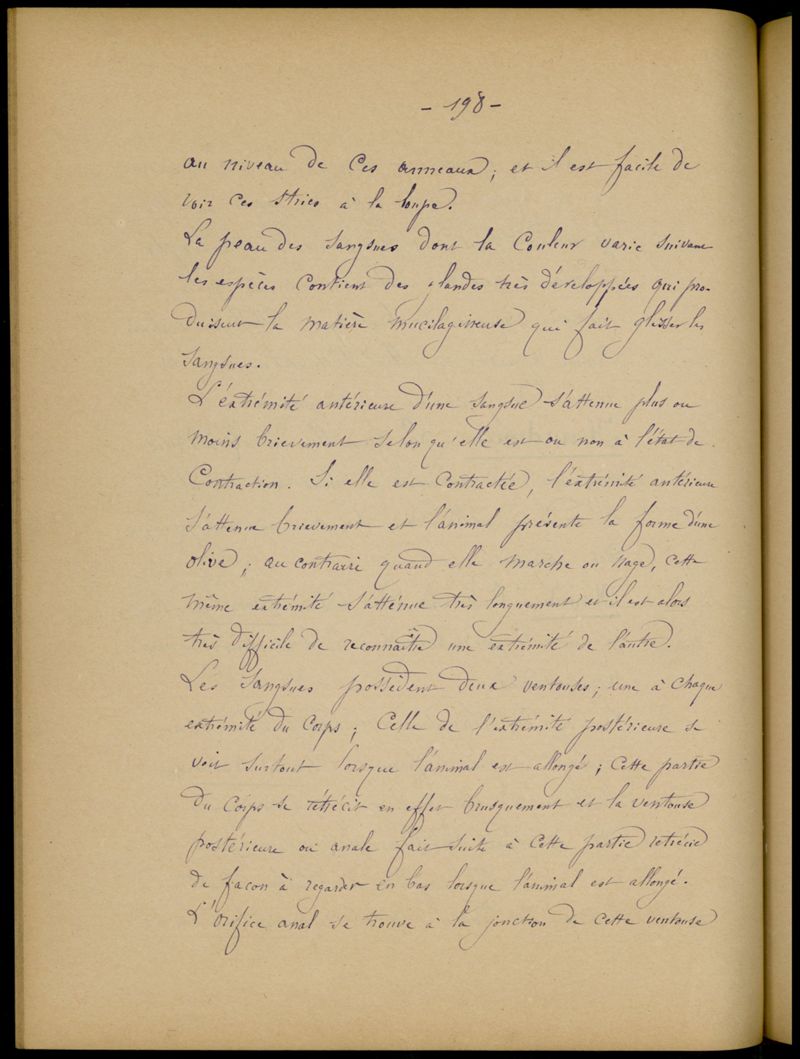 - 198 -
au niveau de ces anneaux ; et il est facile de
voir ces stries à la loupe.
La peau des sangsues dont la couleur varie suivant
les espèces contient des glandes très développées qui pro-
duisent la matière mucilagineuse qui fait glisser les
sangsues.
L'extrémité antérieure d'une sangsue s'atténue plus ou
moins brievement selon qu'elle est ou non à l'état de
contraction. Si elle est contractée, l'extrémité antérieure
s'atténue brievement et l'animal présente la forme d'une
olive ; au contraire quand elle marche ou nage, cette
même extrémité s'atténue très longuement et il est alors
très difficile de reconnaître une extrémité de l'autre.
Les Sangsues possèdent deux ventouses ; une à chaque
extrémité du corps ; celle de l'extrémité postérieure se
voit surtout lorsque l'animal est allongé ; cette partie
du corps se rétrécit en effet brusquement et la ventouse
postérieure ou anale fait suite à cette partie retrécie
de façon à regarder en bas lorsque l'animal est allongé.
L'orifice anal se trouve à la jonction de cette ventouse